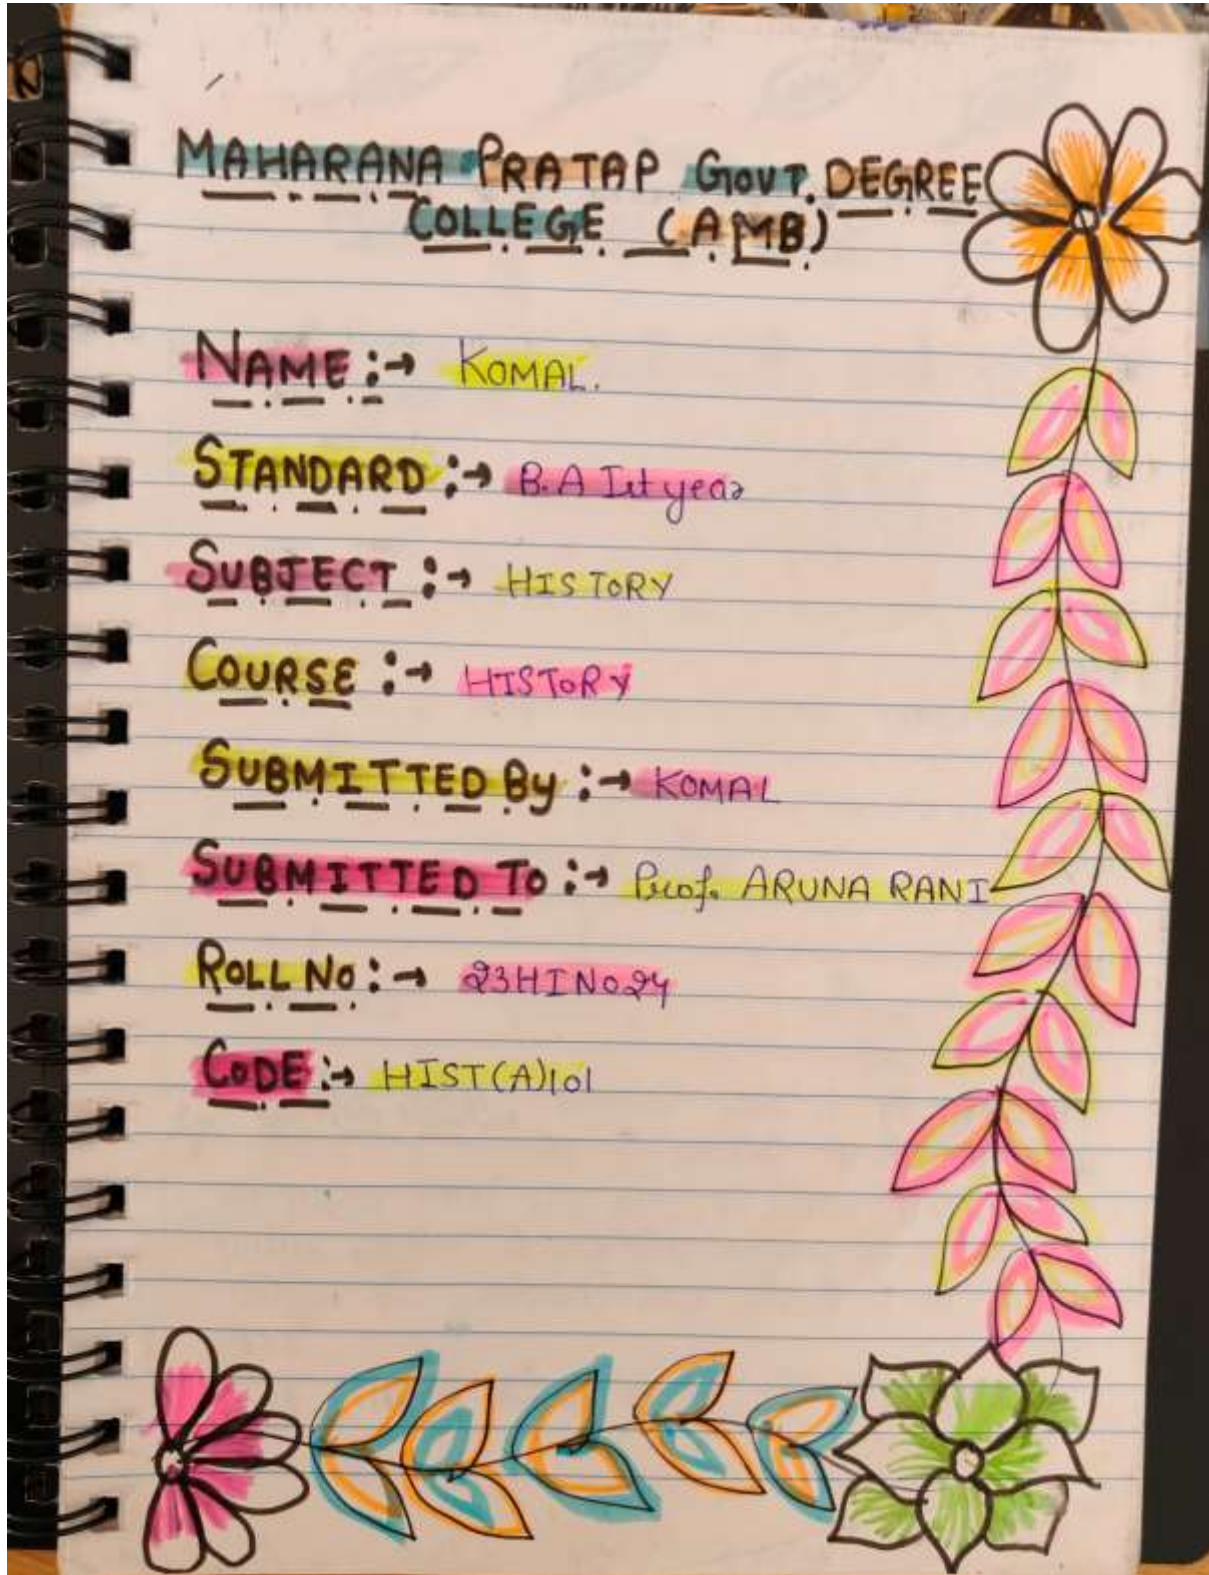 MAHARANA PRATAP GOVT. DEGREE
COLLEGE (AMB)
NAME :→ KOMAL.
STANDARD :→ B.A Ist year
SUBJECT :→ HISTORY
COURSE :→ HISTORY
SUBMITTED By :→ KOMAL
SUBMITTED TO :→ Prof. ARUNA RANI
ROLL NO :→ 23HINO24
CODE :→ HIST(A)101